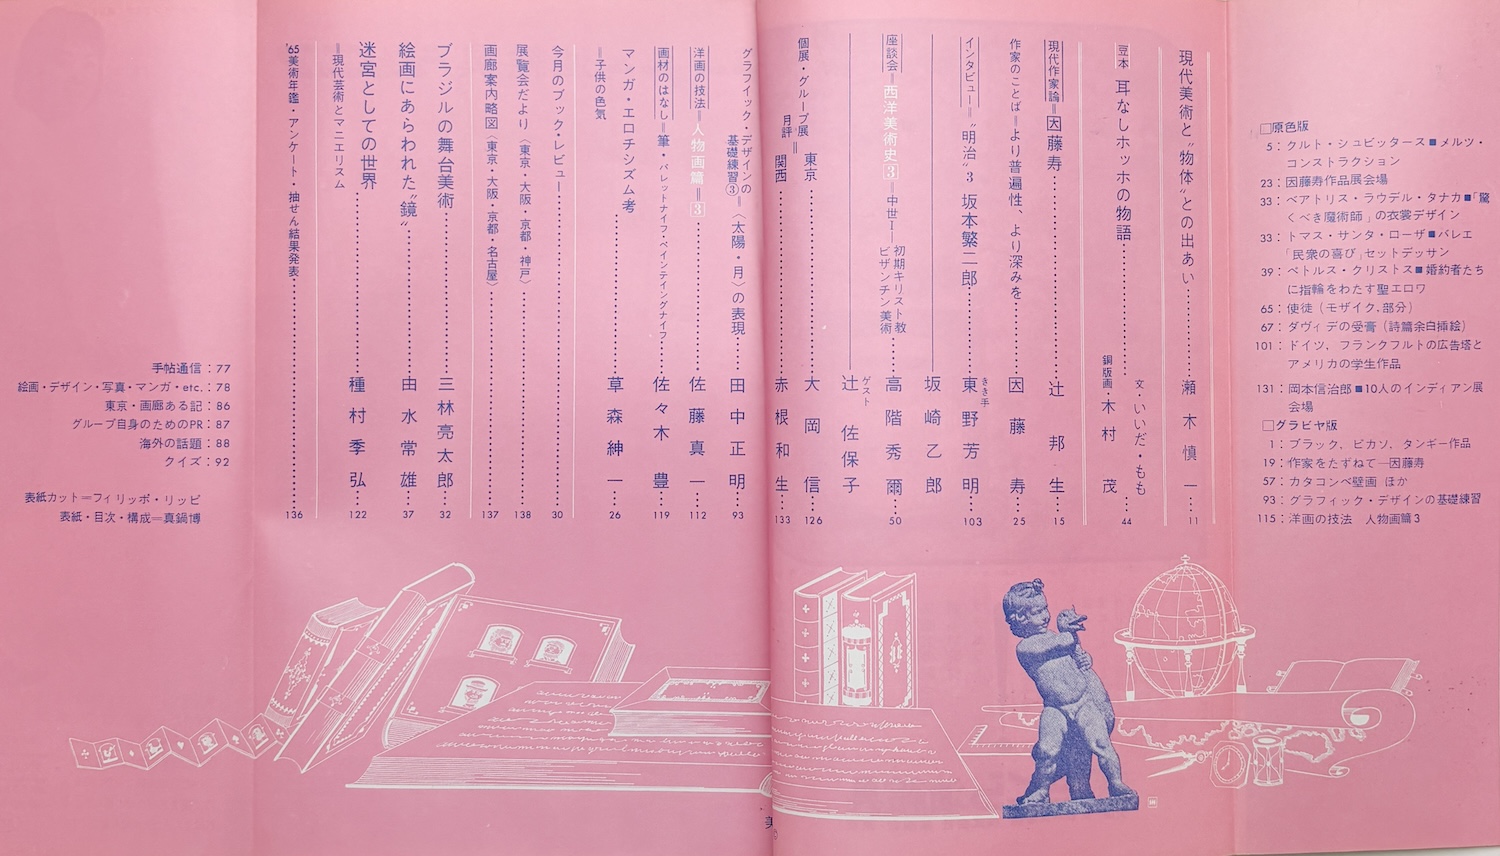 □原色版
5：クルト・シュビッタース■メルツ・
コンストラクション
23：因藤寿作品展会場
33：ベアトリス・ラウデル・タナカ■「驚
くべき魔術師」の衣裳デザイン
33：トマス・サンタ・ローザ■バレエ
「民衆の喜び」セットデッサン
39：ペトルス・クリストス■婚約者たち
に指輪をわたす聖エロワ
65：使徒（モザイク.部分）
67：ダヴィデの受膏（詩篇余白挿絵）
101：ドイツ、フランクフルトの広告塔と
アメリカの学生作品
131：岡本信治郎■10人のインディアン展
会場
□グラビヤ版
1：ブラック、ピカソ、タンギー作品
19：作家をたずねて―因藤寿
57：カタコンベ壁画 ほか
93：グラフィック・デザインの基礎練習
115：洋画の技法 人物画篇3
現代美術と〝物体〟との出あい……瀬木慎一…11
豆本 耳なしホッホの物語……文・いいだ・もも
銅版画・木村茂…44
現代作家論＝因藤寿……辻邦生…15
作家のことば＝より普遍性、より深みを……因藤寿…25
インタビュー＝〝明治〟3 坂本繁二郎……きき手 東野芳明…103
坂崎乙郎
座談会＝西洋美術史3＝中世Ⅰ―初期キリスト教
ビザンチン美術……高階秀爾…50
ゲスト 辻佐保子
個展・グループ展
月評＝東京……大岡信…126
関西……赤根和生…133
グラフィック・デザインの
基礎練習③＝〈太陽・月〉の表現……田中正明…93
洋画の技法＝人物画篇＝3……佐藤真一…112
画材のはなし＝筆・パレットナイフ・ペインティングナイフ……佐々木豊…119
マンガ・エロチシズム考……草森紳一…26
＝子供の色気
今月のブック・レビュー……30
展覧会だより〈東京・大阪・京都・神戸〉……138
画廊案内略図〈東京・大阪・京都・名古屋〉……137
ブラジルの舞台美術……三林亮太郎…32
絵画にあらわれた〝鏡〟……由水常雄…37
迷宮としての世界……種村季弘…122
＝現代芸術とマニエリスム
'65美術年鑑・アンケート・抽せん結果発表……136
手帖通信：77
絵画・デザイン・写真・マンガ・etc.：78
東京・画廊ある記：86
グループ自身のためのPR：87
海外の話題：88
クイズ：92
表紙カット＝フィリッポ・リッピ
表紙・目次・構成＝真鍋博